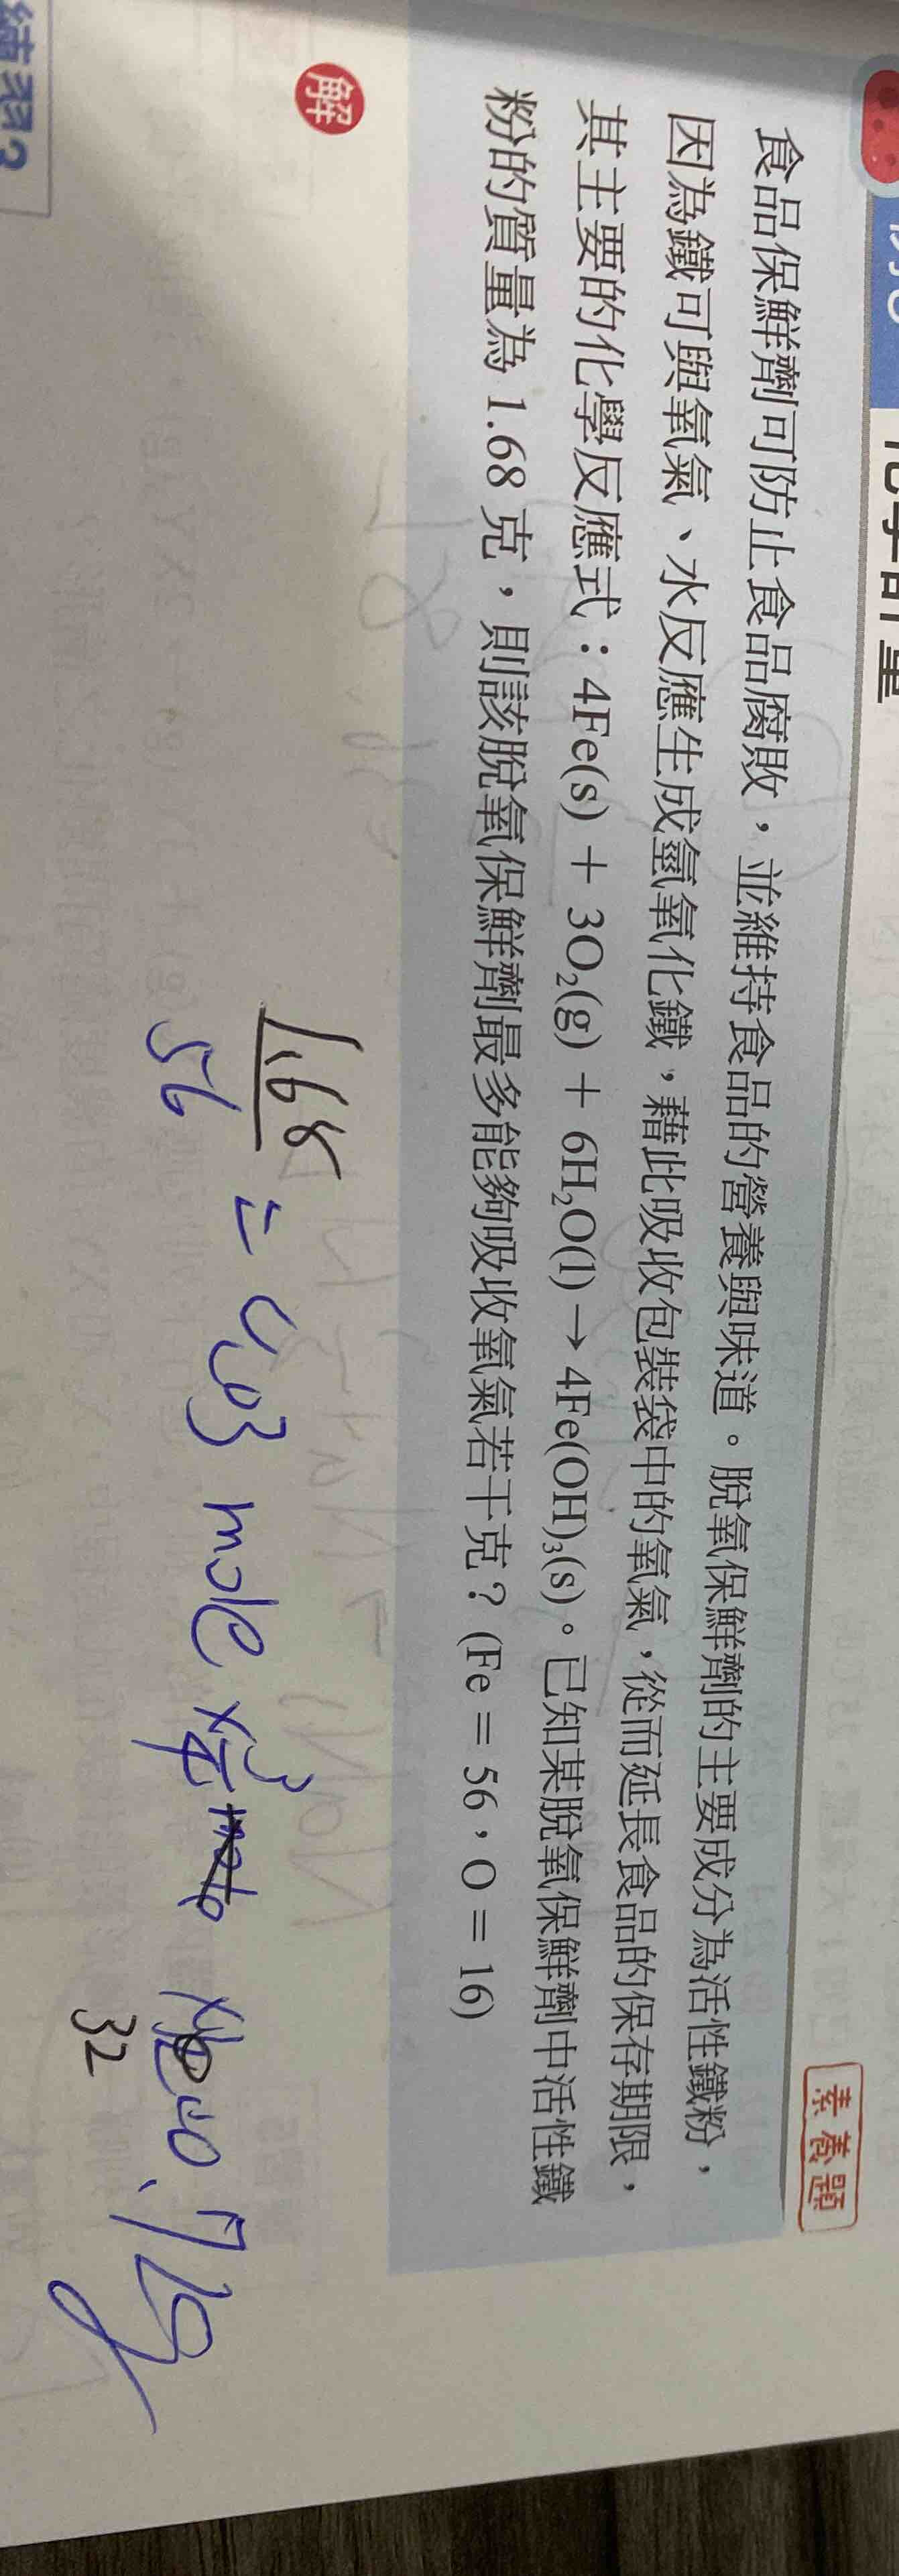 化學計量
素養題
食品保鮮劑可防止食品腐敗，並維持食品的營養與味道。脫氧保鮮劑的主要成分為活性鐵粉，
因為鐵可與氧氣、水反應生成氫氧化鐵，藉此吸收包裝袋中的氧氣，從而延長食品的保存期限，
其主要的化學反應式：4Fe(s) + 3O₂(g) + 6H₂O(l) → 4Fe(OH)₃(s)。已知某脫氧保鮮劑中活性鐵
粉的質量為 1.68 克，則該脫氧保鮮劑最多能夠吸收氧氣若干克？(Fe = 56，O = 16)
解
1.68
56
= 0.03 mole × 3/4
32
練習2